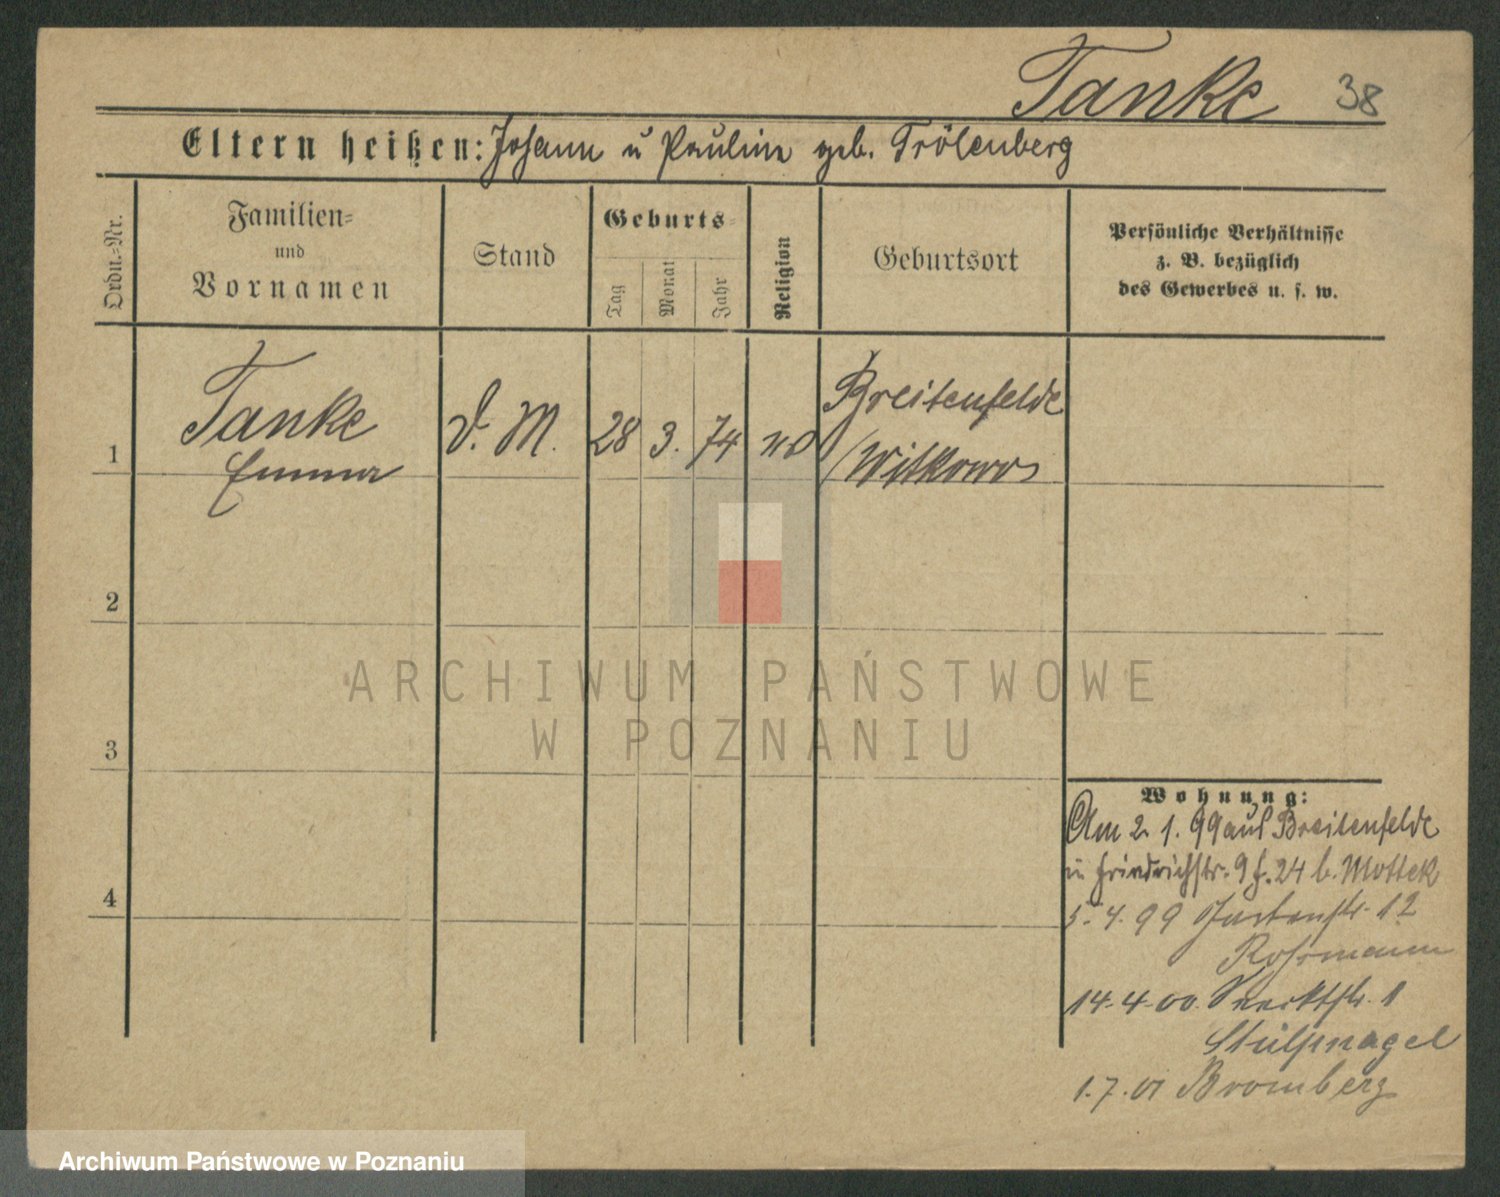 Tanke 38
Eltern heißen: Johann u Pauline geb. Trölenberg
Ordn.-Nr.
Familien-
und
Vornamen
Stand
Geburts-
Tag
Monat
Jahr
Religion
Geburtsort
Persönliche Verhältnisse
z. B. bezüglich
des Gewerbes u. s. w.
1
Tanke
Emma
D. M.
28
3.
74
Breitenfelde
Witkowo
2
3
4
ARCHIWUM PAŃSTWOWE
W POZNANIU
Wohnung:
Am 2. 1. 99 aus Breitenfelde
n Friedrichstr. 9 b. Mottek
5. 4. 99 Gartenstr. 12
Rohrmann
14. 4. 00. 1
Stülpnagel
1. 7. 01 Bromberg
Archiwum Państwowe w Poznaniu